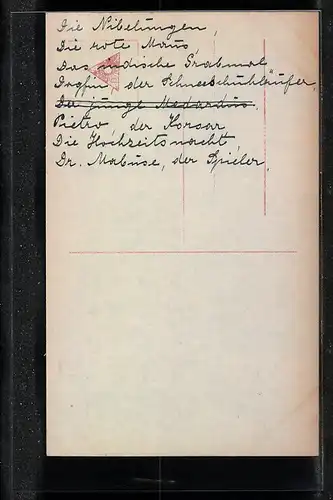 Die Nibelungen,
Die rote Maus,
Das indische Grabmal
Dagfin der Schneeschuhläufer,
Der junge Medardus,
Pietro der Korsar
Die Hochzeitsnacht,
Dr. Mabuse, der Spieler.